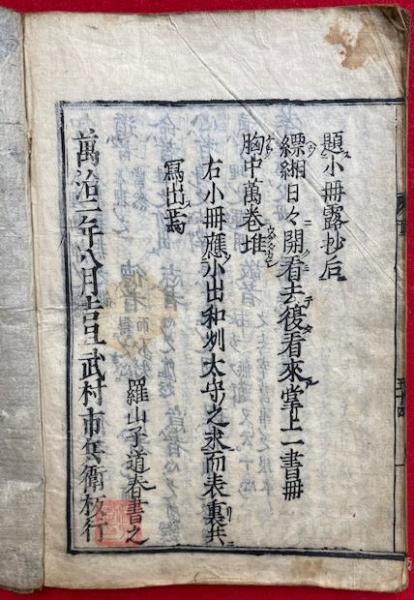 題小冊露抄后
縹緗日々開看去復看來掌上一書冊
胸中萬卷堆
右小冊應小出和刕太守之求而表裏共
寫出焉
羅山子道春書之
萬治二年八月吉旦武村市兵衛板行